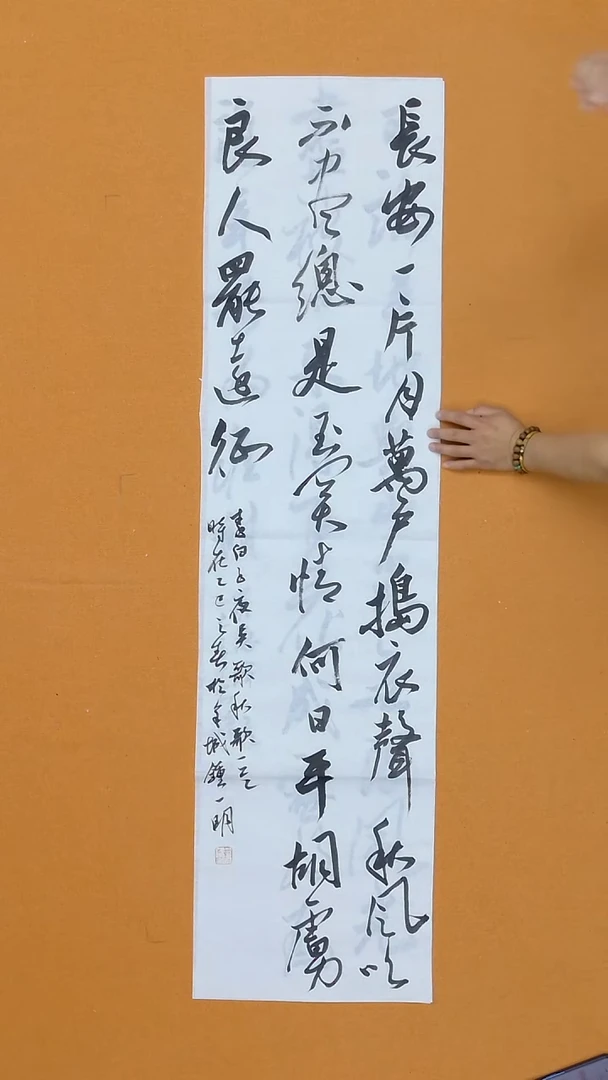 長安一片月萬戶搗衣聲秋風吹
不盡總是玉關情何日平胡虜
良人罷遠征
李白子夜吳歌秋歌一首
時在乙巳之春於城鍾一明